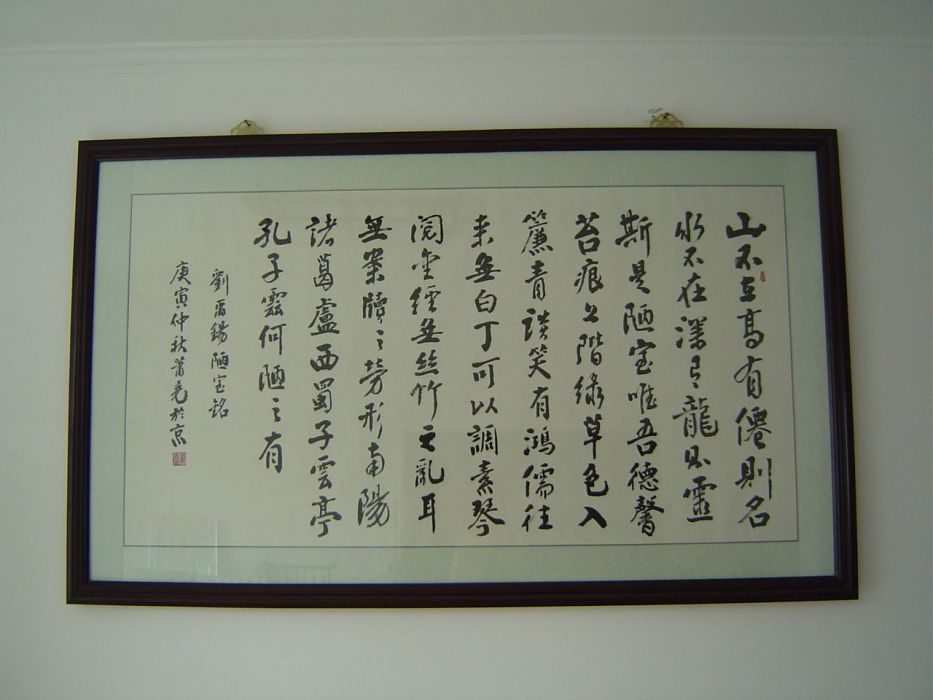 山不在高有僊則名
水不在深有龍則靈
斯是陋室唯吾德馨
苔痕上階綠草色入
簾青談笑有鴻儒往
来無白丁可以調素琴
閲金經無丝竹之亂耳
無案牘之勞形南陽
諸葛廬西蜀子雲亭
孔子雲何陋之有
劉禹錫陋室銘
庚寅仲秋於京